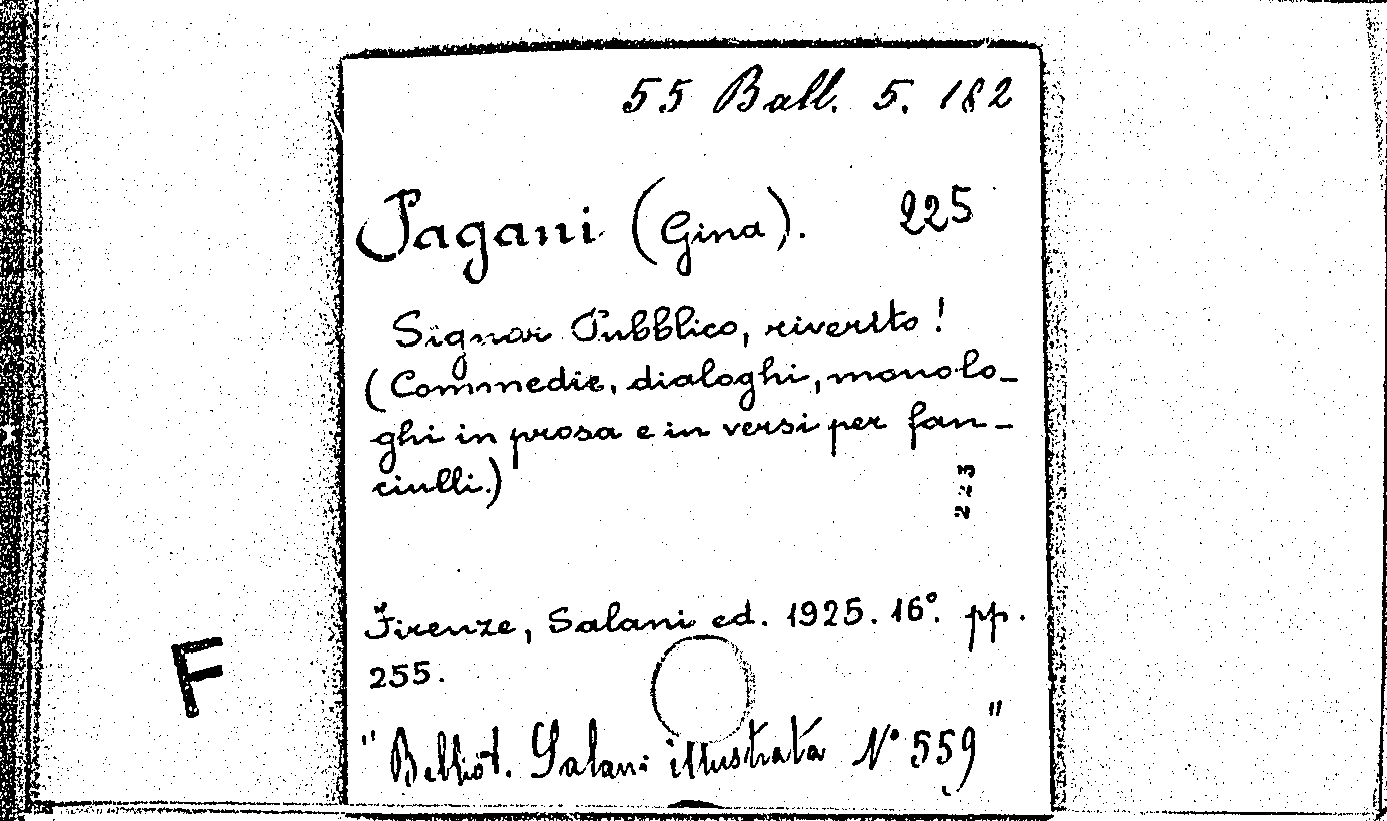 55 Ball. 5. 182
Pagani (Gina). 225
Signor Pubblico, riverito!
(Commedie, dialoghi, monolo-
ghi in prosa e in versi per fan-
ciulli.)
223
Firenze, Salani ed. 1925. 16º. pp.
255.
F
"Bibliot. Salani illustrata Nº 559"